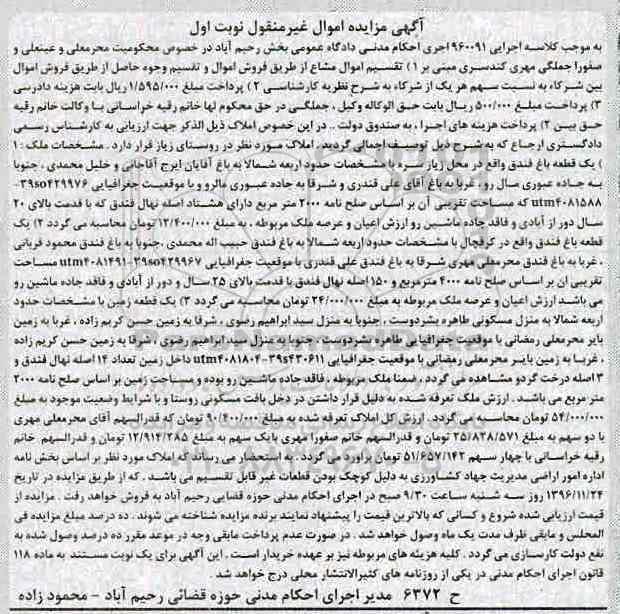 آگهی مزایده اموال غیرمنقول نوبت اول
به موجب کلاسه اجرایی ۹۶۰۰۹۱ اجرای احکام مدنی دادگاه عمومی بخش رحیم آباد در خصوص محکومیت محرمعلی و عینعلی و
صفورا جملگی مهری کندسری مبنی بر ۱) تقسیم اموال مشاع از طریق فروش اموال و تقسیم وجوه حاصل از طریق فروش اموال
بین شرکاء به نسبت سهم هر یک از شرکاء به شرح نظریه کارشناسی ۲) پرداخت مبلغ ۱/۵۹۵/۰۰۰ ریال بابت هزینه دادرسی
۳) پرداخت مبلغ ۵۰۰/۰۰۰ ریال بابت حق الوکاله وکیل، جملگی در حق محکوم لها خانم رقیه خراسانی با وکالت خانم رقیه
حق بین ۲) پرداخت هزینه های اجرا، به صندوق دولت .. در این خصوص املاک ذیل الذکر جهت ارزیابی به کارشناس رسمی
دادگستری ارجاع که به شرح ذیل توصیف اجمالی گردید. املاک مورد نظر در روستای زیاز قرار دارد. مشخصات ملک : ۱
) یک قطعه باغ فندق واقع در محل زیاز سره با مشخصات حدود اربعه شمالا به باغ آقایان ایرج آقاجانی و خلیل محمدی، جنوبا
به جاده عبوری سال رو، غربا به باغ آقای علی قندری و شرقا به جاده عبوری مالرو و با موقعیت جغرافیایی ۳۹s۰۴۲۹۹۷۶-
utm۴۰۸۱۵۸۸ که مساحت تقریبی آن بر اساس صلح نامه ۲۰۰۰ متر مربع دارای هشتاد اصله نهال فندق که با قدمت بالای ۲۰
سال دور از آبادی و فاقد جاده ماشین رو ارزش اعیان و عرصه ملک مربوطه، به مبلغ ۱۲/۴۰۰/۰۰۰ تومان محاسبه می گردد ۲) یک
قطعه باغ فندق واقع در گرفچال با مشخصات حدود اربعه شمالا به باغ فندق حبیب اله محمدی، جنوبا به باغ فندق محمود قربانی
، غربا به باغ فندق محرمعلی مهری شرقا به باغ فندق علی قندری با موقعیت جغرافیایی ۳۹s۰۴۲۹۹۶۷-utm۴۰۸۱۴۹۱ مساحت
تقریبی آن بر اساس صلح نامه ۴۰۰۰ مترمربع و ۱۵۰ اصله نهال فندق با قدمت بالای ۲۵ سال و دور از آبادی و فاقد جاده ماشین رو
می باشد ارزش اعیان و عرصه ملک مربوطه به مبلغ ۲۴/۰۰۰/۰۰۰ تومان محاسبه می گردد ۳) یک قطعه زمین با مشخصات حدود
اربعه شمالا به منزل مسکونی طاهره بشردوست، جنوبا به منزل سید ابراهیم رضوی، شرقا به زمین حسن کریم زاده، غربا به زمین
بایر محرمعلی رمضانی با موقعیت جغرافیایی طاهره بشردوست، جنوبا به منزل سید ابراهیم رضوی، شرقا به زمین حسن کریم زاده
، غربا به زمین بایر محرمعلی رمضانی با موقعیت جغرافیایی ۳۹s۴۳۰۶۱۱-utm۴۰۸۱۸۰۴ داخل زمین تعداد ۱۴ اصله نهال فندق و
۳ اصله درخت گردو مشاهده می گردد، ضمنا ملک مربوطه، فاقد جاده ماشین رو بوده و مساحت زمین بر اساس صلح نامه ۲۰۰۰
متر مربع می باشد. ارزش ملک تعرفه شده به دلیل قرار داشتن در دخل بافت مسکونی روستا و با شرایط وضعیت موجود به مبلغ
۵۴/۰۰۰/۰۰۰ تومان محاسبه می گردد. ارزش کل املاک تعرفه شده به مبلغ ۹۰/۴۰۰/۰۰۰ تومان که قدرالسهم آقای محرمعلی مهری
با دو سهم به مبلغ ۲۵/۸۲۸/۵۷۱ تومان و قدرالسهم خانم صفورا مهری با یک سهم به مبلغ ۱۲/۹۱۴/۲۸۵ تومان و قدرالسهم خانم
رقیه خراسانی با چهار سهم ۵۱/۶۵۷/۱۴۲ تومان برآورد می گردد. به استحضار می رساند که املاک مورد نظر بر اساس بخش نامه
اداره امور اراضی مدیریت جهاد کشاورزی به دلیل کوچک بودن قطعات غیر قابل تقسیم می باشد. که از طریق مزایده در تاریخ
۱۳۹۶/۱۱/۲۴ روز سه شنبه ساعت ۹/۳۰ صبح در اجرای احکام مدنی حوزه قضایی رحیم آباد به فروش خواهد رفت. مزایده از
قیمت ارزیابی شده شروع و کسانی که بالاترین قیمت را پیشنهاد نمایند برنده مزایده شناخته می شوند. ده درصد مبلغ مزایده فی
المجلس و مابقی ظرف مدت یک ماه وصول خواهد شد. در صورت عدم پرداخت مابقی وجه در موعد مقرر ده درصد وصول شده به
نفع دولت کارسازی می گردد. کلیه هزینه های مربوطه نیز بر عهده خریدار است. این آگهی برای یک نوبت مستند به ماده ۱۱۸
قانون اجرای احکام مدنی در یکی از روزنامه های کثیرالانتشار محلی درج خواهد شد.
ح ۶۳۷۲ مدیر اجرای احکام مدنی حوزه قضائی رحیم آباد - محمود زاده